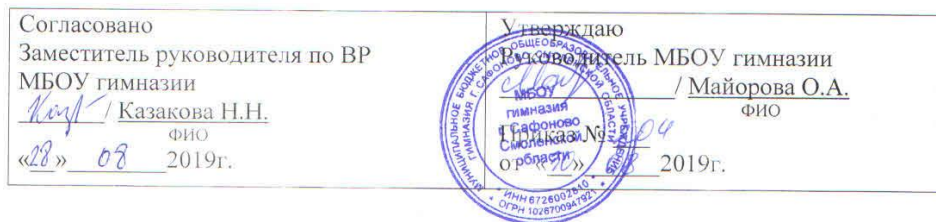 Согласовано
Заместитель руководителя по ВР
МБОУ гимназии
/ Казакова Н.Н.
ФИО
«28» 08 2019г.
Утверждаю
Руководитель МБОУ гимназии
/ Майорова О.А.
ФИО
Приказ №
от « » 2019г.
МУНИЦИПАЛЬНОЕ БЮДЖЕТНОЕ ОБЩЕОБРАЗОВАТЕЛЬНОЕ УЧРЕЖДЕНИЕ
ГИМНАЗИЯ Г. САФОНОВО СМОЛЕНСКОЙ ОБЛАСТИ
МБОУ
гимназия
г.Сафоново
Смоленской
области